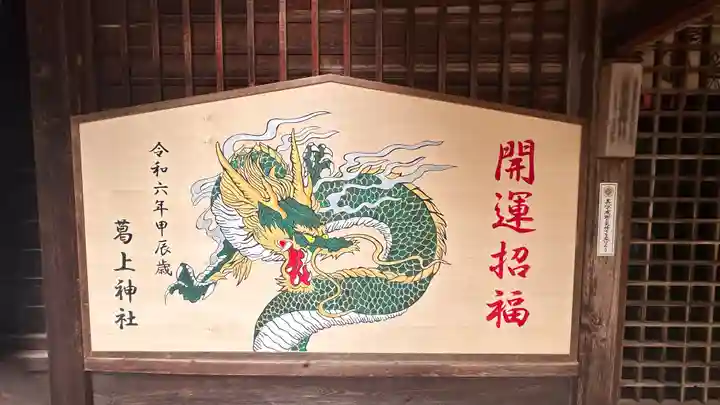 開運招福
令和六年甲辰歳
葛上神社